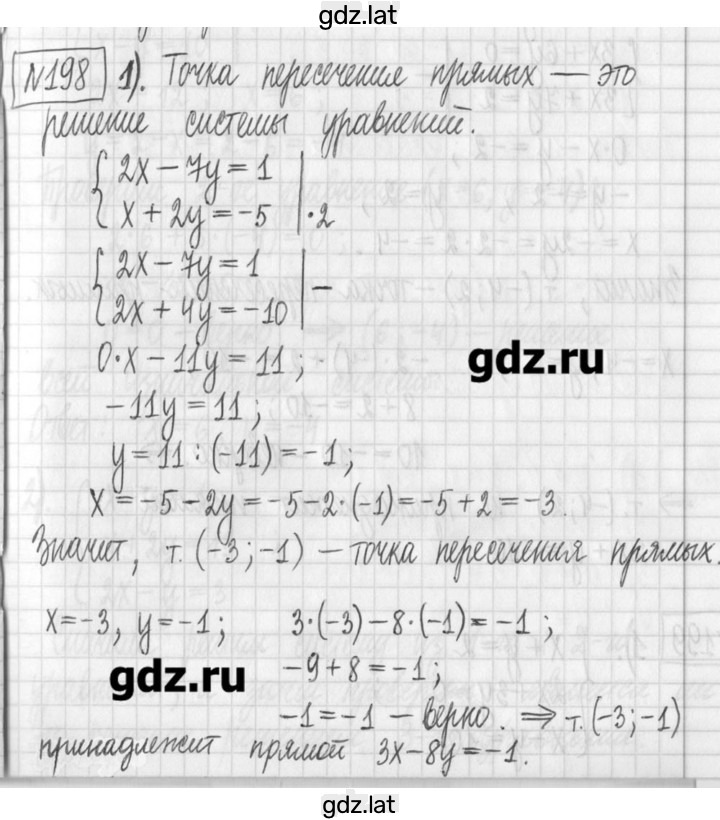 gdz.lat
№198 1). Точка пересечение прямых — это
решение системы уравнений.
{ 2x − 7y = 1
{ x + 2y = −5 | ·2
{ 2x − 7y = 1
{ 2x + 4y = −10 | −
0·x − 11y = 11;
gdz.ru
−11y = 11;
y = 11 : (−11) = −1;
x = −5 − 2y = −5 − 2·(−1) = −5 + 2 = −3.
Значит, т. (−3; −1) — точка пересечения прямых.
x = −3, y = −1; 3·(−3) − 8·(−1) = −1;
gdz.ru −9 + 8 = −1;
−1 = −1 — верно. ⇒ т. (−3; −1)
принадлежит прямой 3x − 8y = −1.
gdz.lat